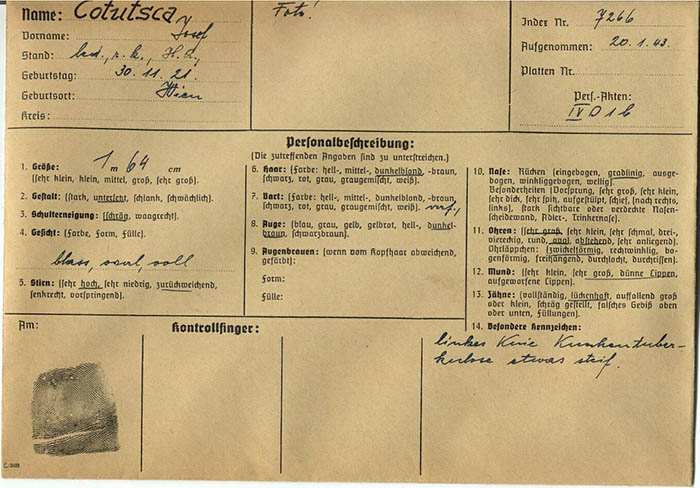 Name: Cotutsca
Vorname: Josef
Stand: led., r. k., H. A.,
Geburtstag: 30. 11. 21.
Geburtsort: Wien
Kreis:
Foto!
Index Nr. 7266
Aufgenommen: 20. 1. 43.
Platten Nr.
Pers.-Akten:
IV D 1 b
Personalbeschreibung:
(Die zutreffenden Angaben sind zu unterstreichen.)
1. Größe: 1 m 64 cm
(sehr klein, klein, mittel, groß, sehr groß).
2. Gestalt: (stark, untersetzt, schlank, schwächlich).
3. Schulterneigung: (schräg, waagrecht).
4. Gesicht: (Farbe, Form, Fülle).
blass, oval, voll
5. Stirn: (sehr hoch, sehr niedrig, zurückweichend,
senkrecht, vorspringend).
6. Haar: (Farbe: hell-, mittel-, dunkelblond, -braun,
schwarz, rot, grau, graugemischt, weiß).
7. Bart: (Farbe: hell-, mittel-, dunkelblond, -braun,
schwarz, rot, grau, graugemischt, weiß).
8. Auge: (blau, grau, gelb, gelbrot, hell-, dunkel-
braun, schwarzbraun).
9. Augenbrauen: (wenn vom Kopfhaar abweichend,
gefärbt):
Form:
Fülle:
10. Nase: Rücken (eingebogen, gradlinig, ausge-
bogen, winkliggebogen, wellig).
Besonderheiten (Vorsprung, sehr groß, sehr klein,
sehr dick, sehr spitz, aufgestülpt, schief, (nach rechts,
links), stark sichtbare oder verdeckte Nasen-
scheidewand, Adler-, Trinkernase).
11. Ohren: (sehr groß, sehr klein, sehr schmal, drei-,
viereckig, rund, oval, abstehend, sehr anliegend).
Ohrläppchen: (zwickelförmig, rechtwinklig, bo-
genförmig, freihängend, durchlocht, durchrissen).
12. Mund: (sehr klein, sehr groß, dünne Lippen,
aufgeworfene Lippen).
13. Zähne: (vollständig, lückenhaft, auffallend groß
oder klein, schräg gestellt, falsches Gebiß oben
oder unten, Füllungen).
14. Besondere Kennzeichen:
linkes Knie Knochentuber-
kulose etwas steif.
Am:
Kontrollfinger: